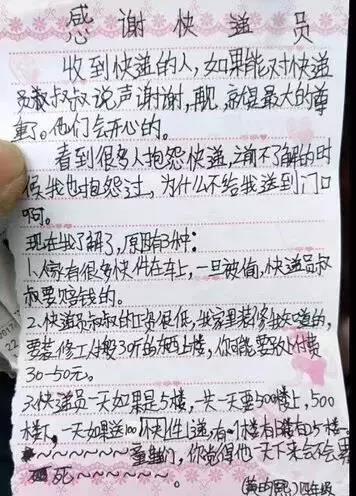 感谢快递员
收到快递的人，如果能对快递
员叔叔说声谢谢，就是最大的尊
重了。他们会开心的。
看到很多人抱怨快递，之前不了解的时
候我也抱怨过，为什么不给我送到门口
啊。
现在我了解了，原因有3种：
1.人家有很多快件在车上，一旦被偷，快递员叔
叔要赔钱的。
2.快递员叔叔的工资很低，我家里装修我知道的，
要装修工人搬30斤的东西上楼，你可能要额外付费
30-50元。
3.快递员一天如果是5楼，一共一天要500楼上，500
楼下，一天如果送100件上递，有1楼有
你觉得他一天下来会不会累
死～～～～～
四年级